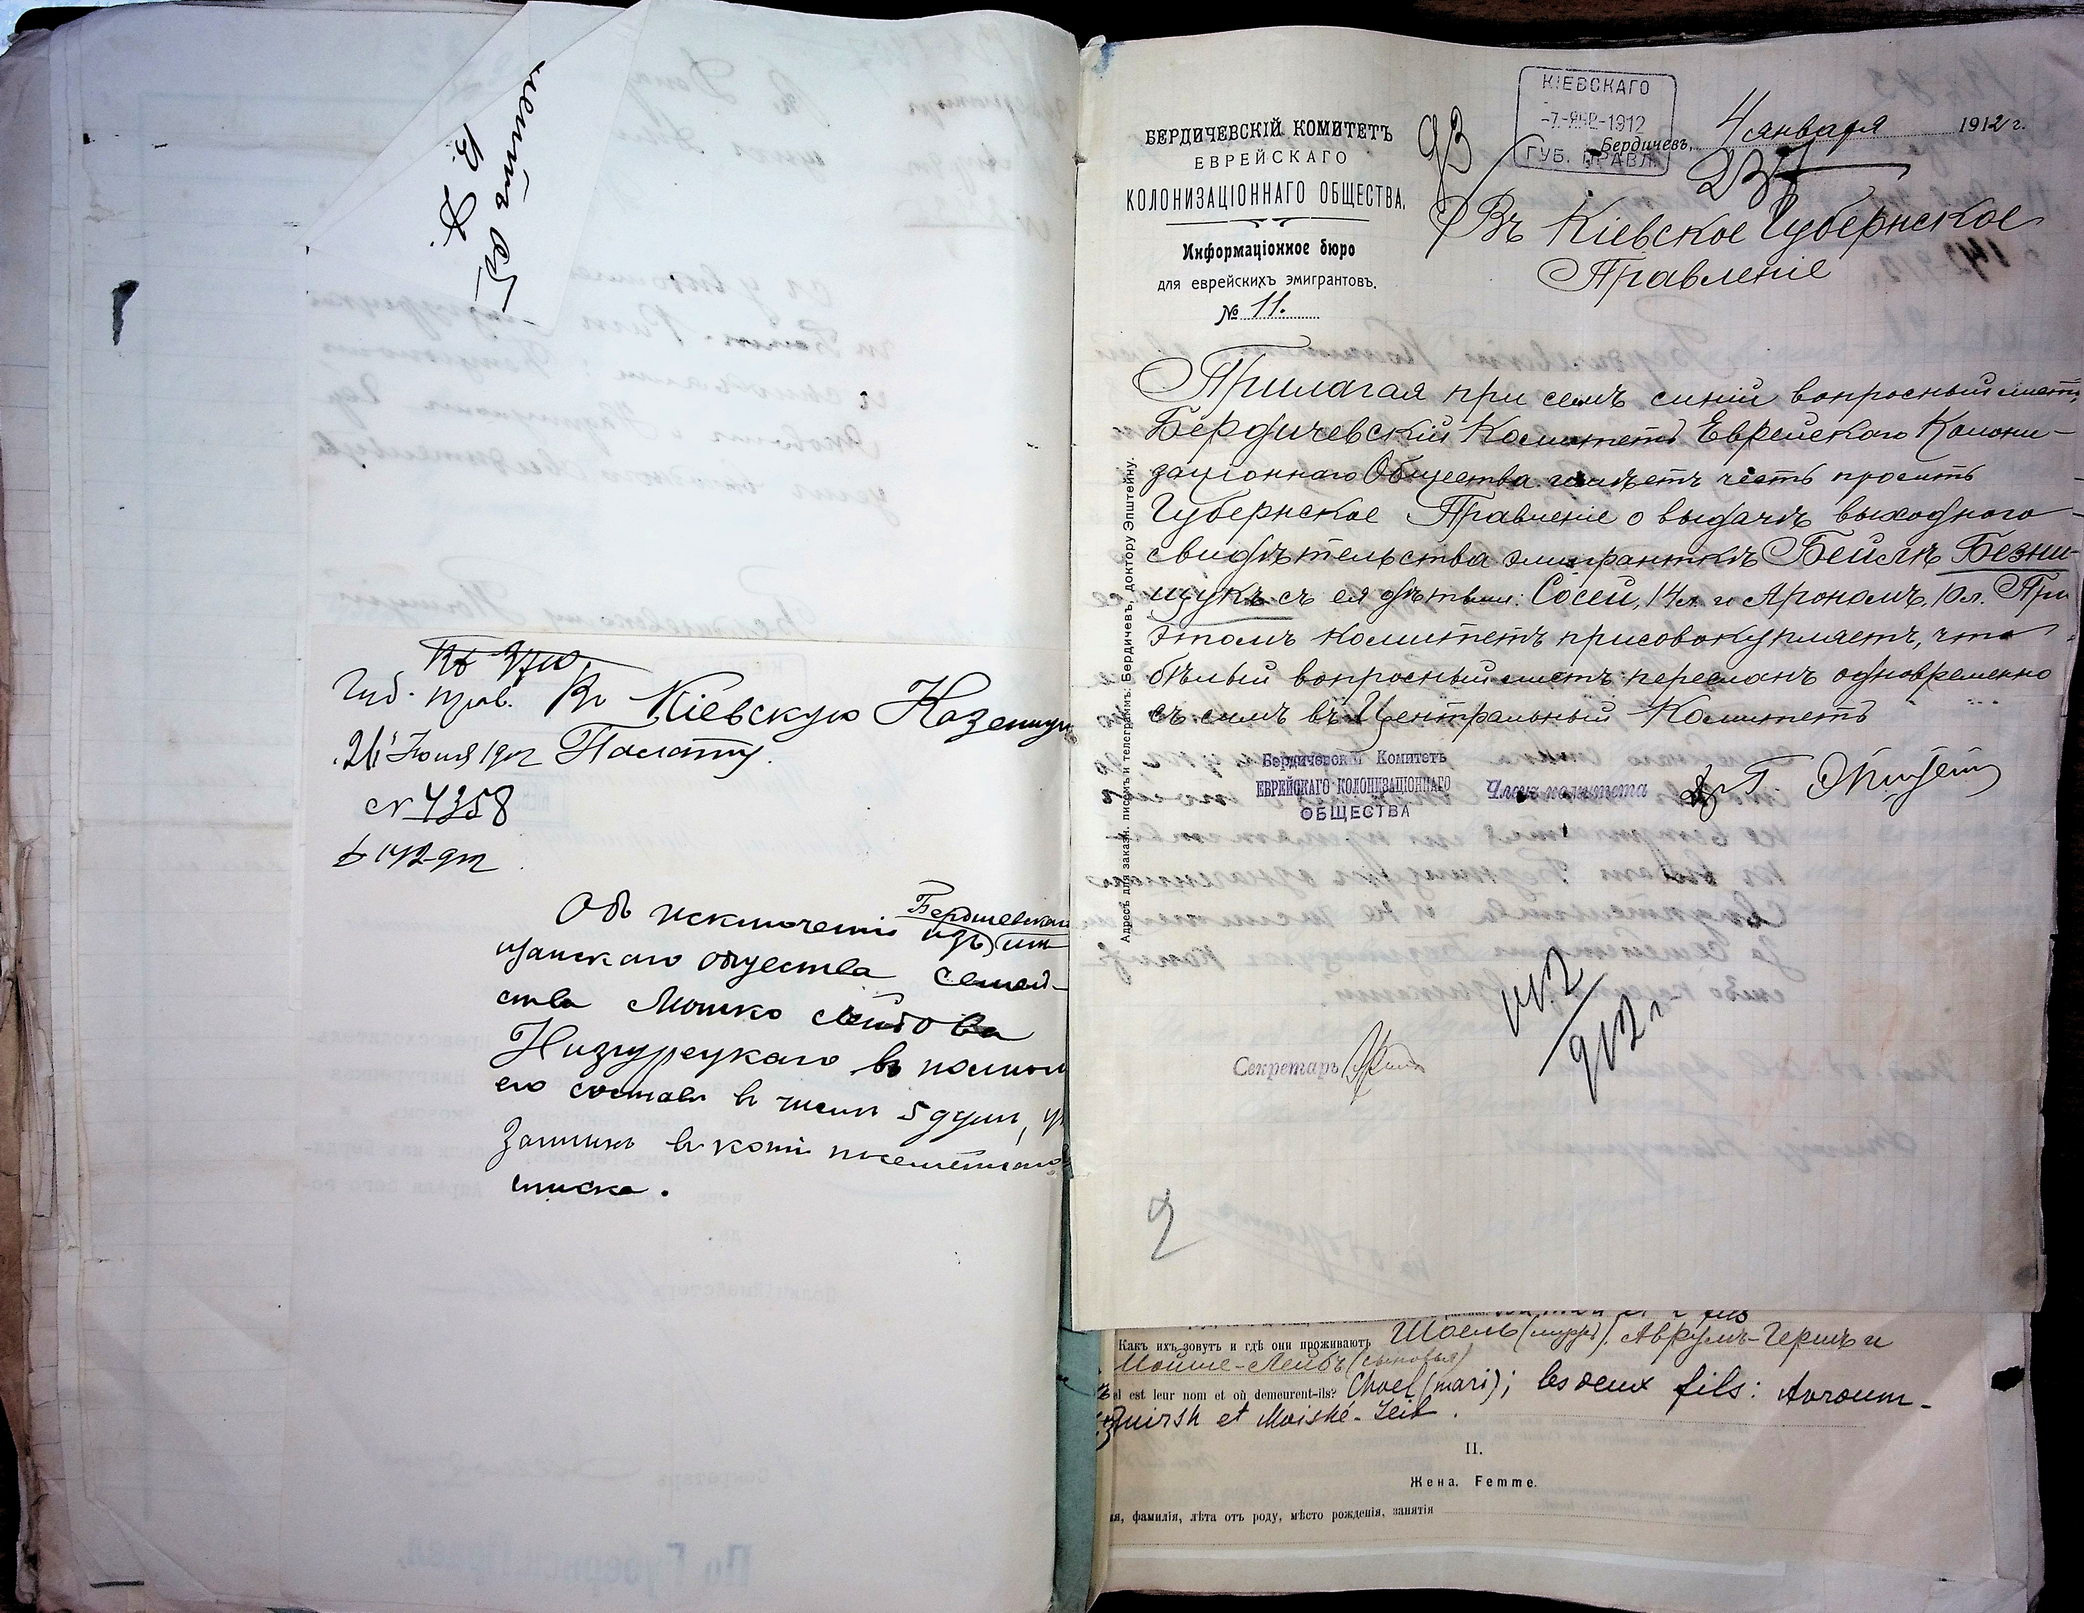 Губ. прав.
21 Іюня 1912
№ 4358
Въ Кіевскую Казенную
Палату.
Объ исключеніи изъ Бердичевскаго мѣ-
щанскаго общества семей-
ства Мошко Лейбова
Низгурецкаго въ полномъ
его составѣ въ числѣ 5 душъ,
въ копіи посемейнаго
списка.
БЕРДИЧЕВСКІЙ КОМИТЕТЪ
ЕВРЕЙСКАГО
КОЛОНИЗАЦІОННАГО ОБЩЕСТВА.
Информаціонное бюро
для еврейскихъ эмигрантовъ.
№ 11.
93
КІЕВСКАГО
-7-ЯНВ-1912
ГУБ. ПРАВЛ.
Бердичевъ, 4 января 1912 г.
Въ Кіевское Губернское
Правленіе
Прилагая при семъ синій вопросный листъ,
Бердичевскій Комитетъ Еврейскаго Колони-
заціоннаго Общества имѣетъ честь просить
Губернское Правленіе о выдачѣ выходного
свидѣтельства эмигранткѣ Бейлѣ Безни-
щукъ съ ея дѣтьми: Сосей, 14 л. и Арономъ, 10 л. При
этомъ комитетъ присовокупляетъ, что
бѣлый вопросный листъ пересланъ одновременно
съ симъ въ Центральный Комитетъ
Бердичевскій Комитетъ
ЕВРЕЙСКАГО КОЛОНИЗАЦІОННАГО
ОБЩЕСТВА
Членъ комитета
Эпштейнъ
Адресъ для заказн. писемъ и телеграммъ: Бердичевъ, доктору Эпштейну.
Секретарь
2
Какъ ихъ зовутъ и гдѣ они проживаютъ Шоель (мужъ). Аврумъ-Гершъ и
Мойше-Лейбъ (сыновья)
el est leur nom et où demeurent-ils? Choel (mari); les deux fils: Avroum-
Guirsh et Moishé-Leib.
II.
Жена. Femme.
ія, фамилія, лѣта отъ роду, мѣсто рожденія, занятія